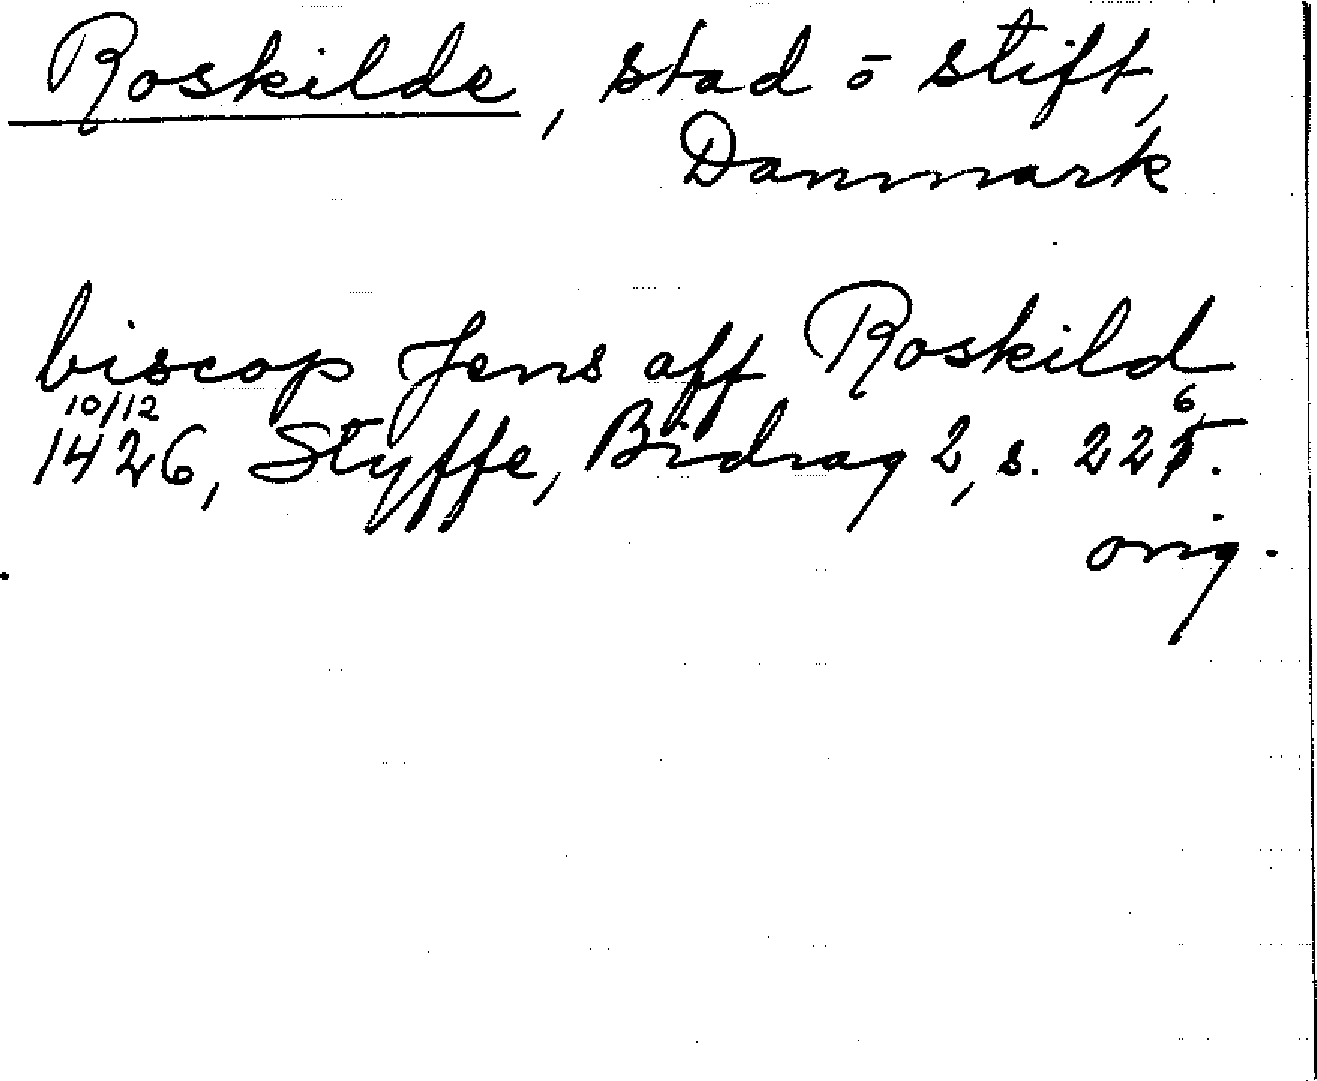 Roskilde, stad o stift,
Danmark
biscop Jens aff Roskild
10/12
1426, Styffe, Bidrag 2, s. 226.
orig.